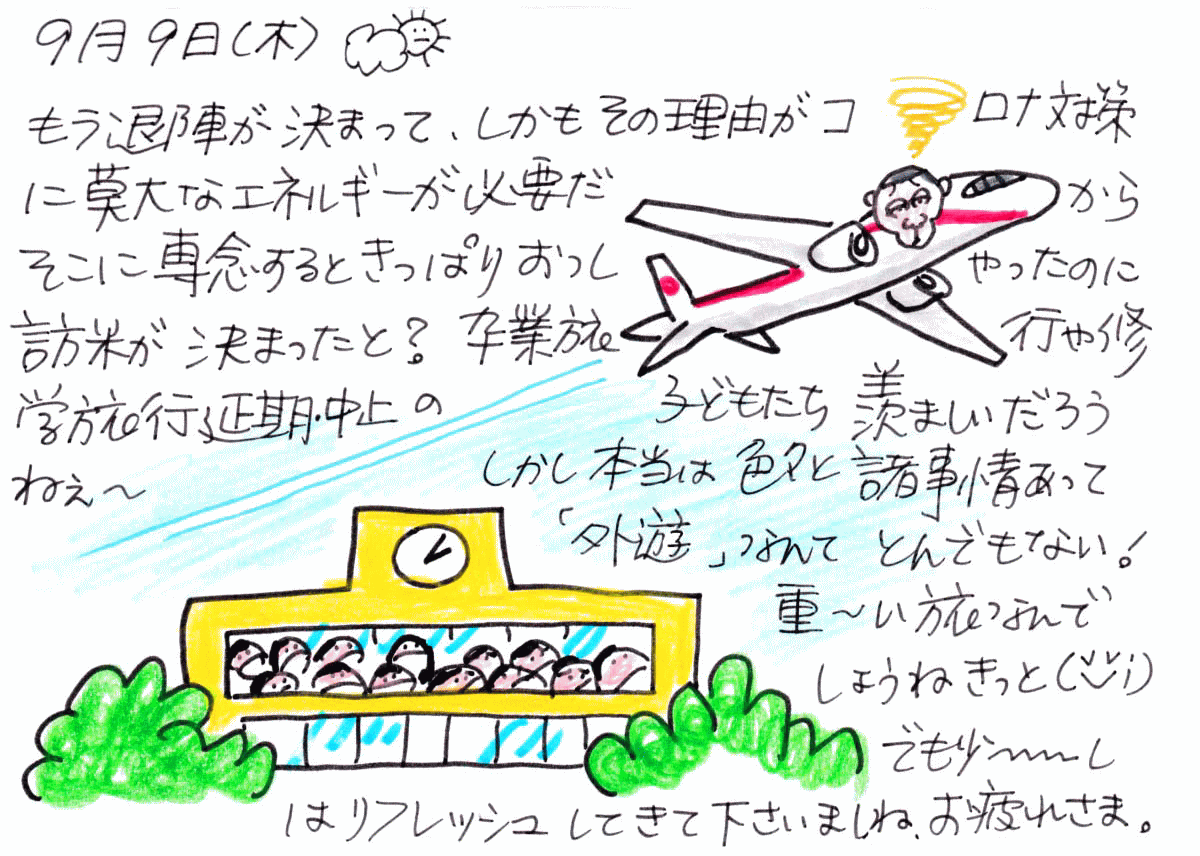 9月9日(木)
もう退陣が決まって、しかもその理由がコロナ対策
に莫大なエネルギーが必要だから
そこに専念するときっぱりおっしやったのに
訪米が決まったと?卒業旅行や修
学旅行延期・中止の子どもたち羨ましいだろう
ねぇ〜しかし本当は色々と諸事情あって
「外遊」なんてとんでもない!
重〜い旅なんで
しょうねきっと(^^;)
でも少〜〜し
はリフレッシュしてきて下さいましね、お疲れさま。